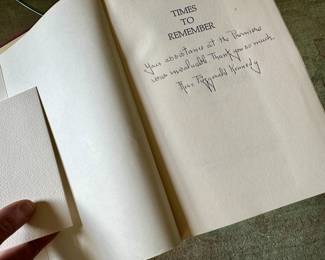 TIMES
TO
REMEMBER
Your assistance at the
was invaluable Thank you so much.
Rose Fitzgerald Kennedy